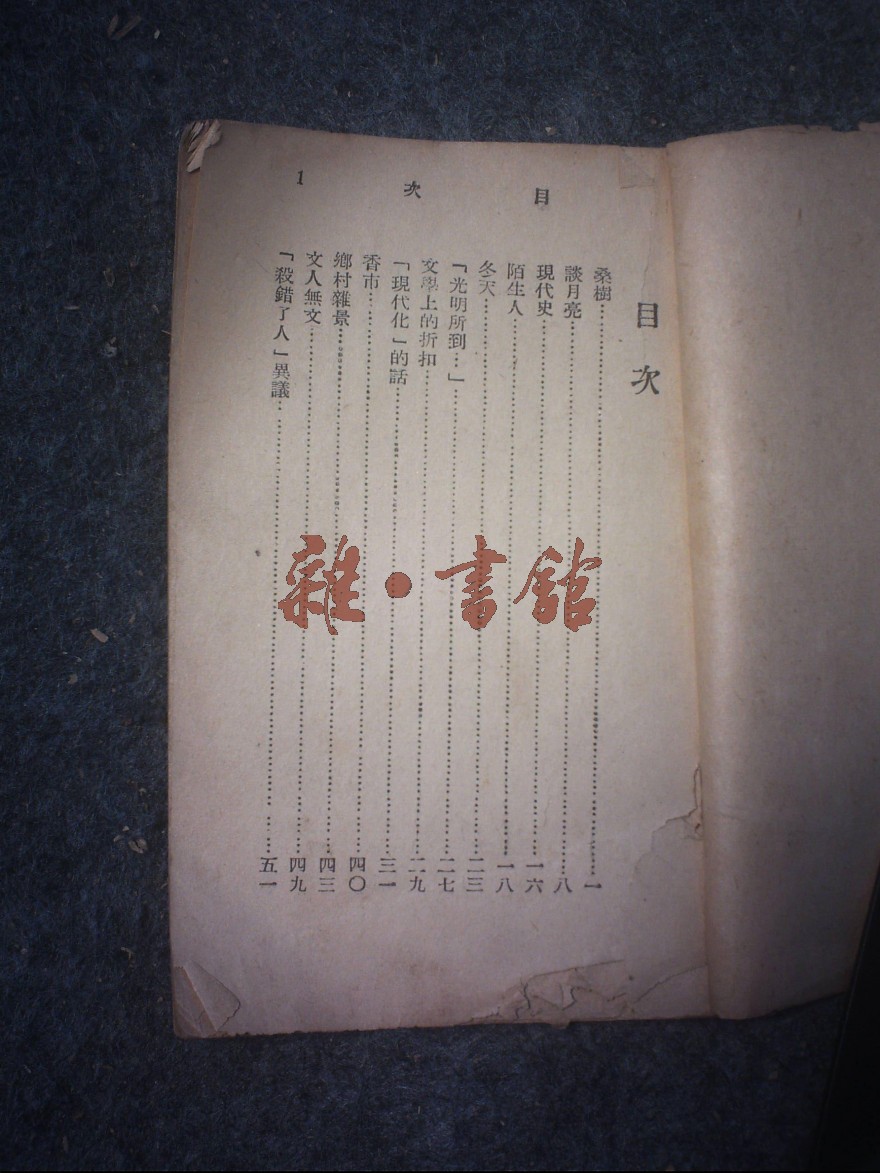 目次
1
目次
桑樹 一
談月亮 八
現代史 一六
陌生人 一八
冬天 二三
「光明所到…」 二七
文學上的折扣 二九
「現代化」的話 三一
香市 四〇
鄉村雜景 四三
文人無文 四九
「殺錯了人」異議 五一
雜•書館